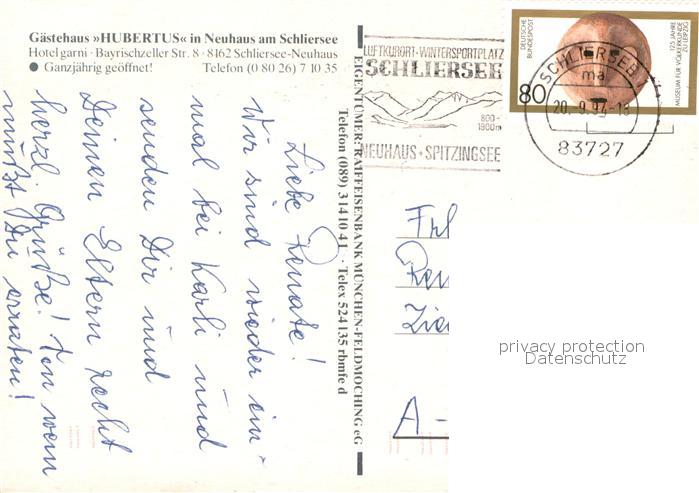 Gästehaus »HUBERTUS« in Neuhaus am Schliersee
Hotel garni · Bayrischzeller Str. 8 · 8162 Schliersee-Neuhaus
● Ganzjährig geöffnet! Telefon (0 80 26) 7 10 35
EIGENTÜMER: RAIFFEISENBANK MÜNCHEN-FELDMOCHING eG
Telefon (089) 3 14 10 41 · Telex 524 135 rbmfe d
LUFTKURORT · WINTERSPORTPLATZ
SCHLIERSEE
800-
1900m
NEUHAUS + SPITZINGSEE
DEUTSCHE
BUNDESPOST
80
125 JAHRE
MUSEUM FÜR VÖLKERKUNDE
ZU LEIPZIG
SCHLIERSEE 1
ma
20.-9.94-18
83727
Liebe Renate!
Wir sind wieder ein-
mal bei Karli und
senden Dir und
Deinen Eltern recht
herzl. Grüße! Von wem
mußt Du erraten!
Frl
Ren
Zie
A-
privacy protection
Datenschutz